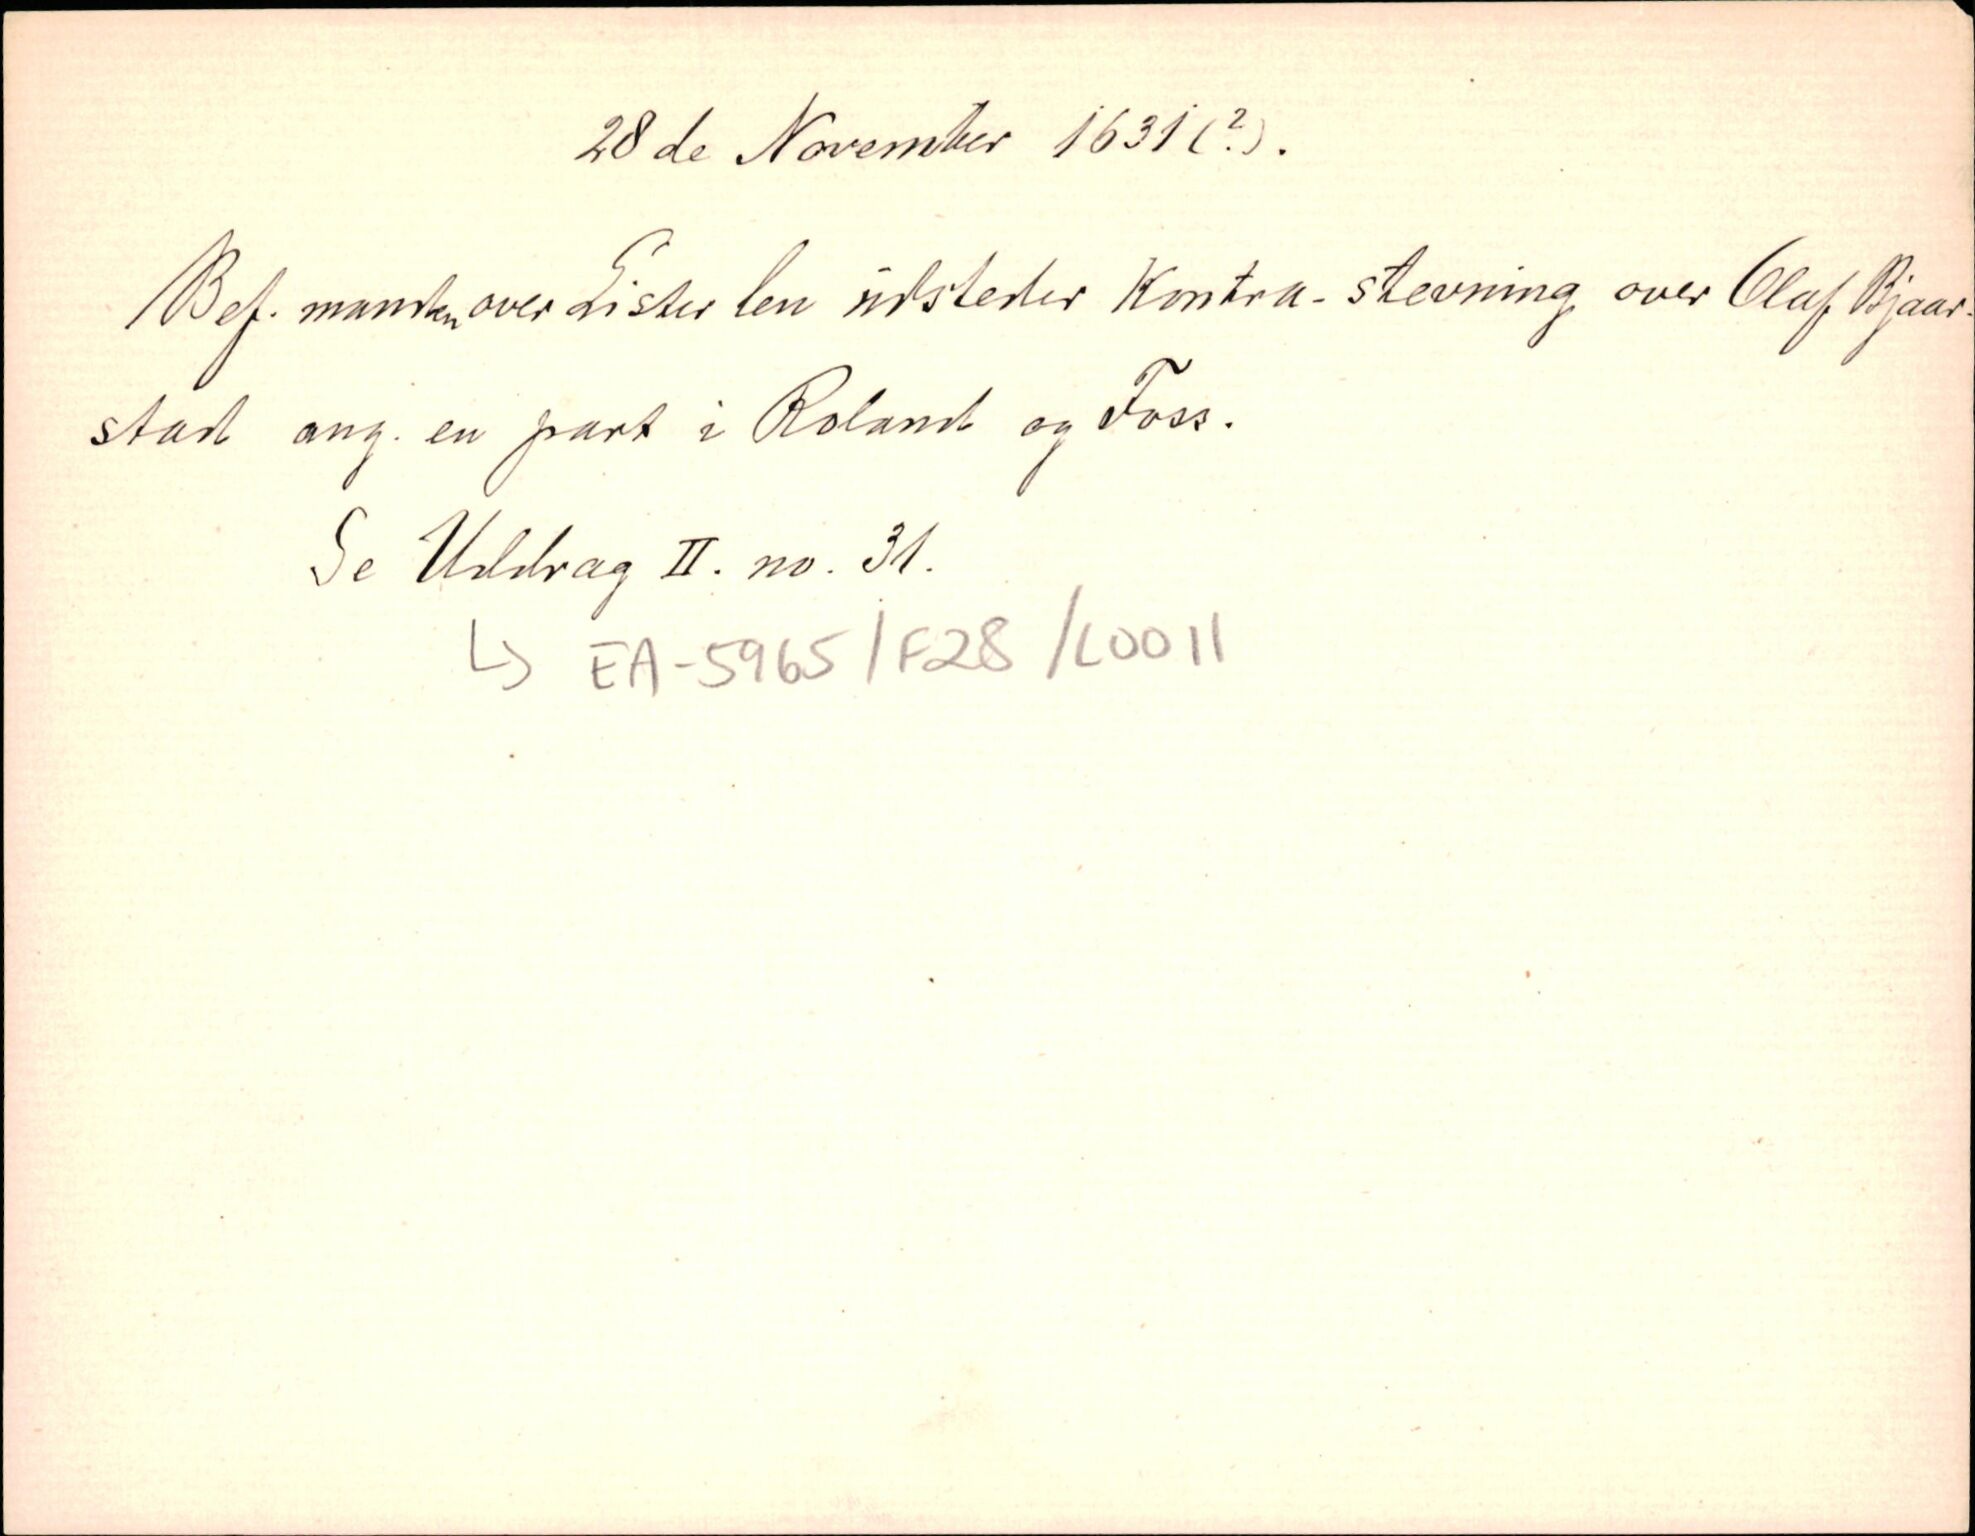 28de November 1631(?).
Bef. manden over Lister len udsteder Kontra-stevning over Olaf Bjaar-
stad ang. en part i Roland og Foss.
Se Uddrag II. no. 31.
↳ EA-5965/F28/L0011